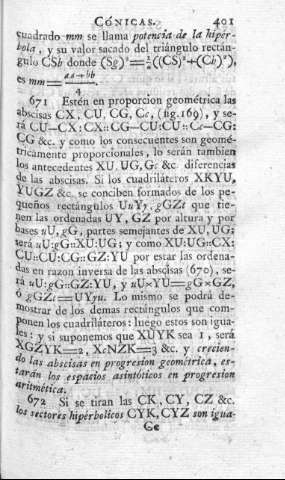 CÓNICAS. 401
cuadrado mm se llama potencia de la hipér-
bola, y su valor sacado del triángulo rectán-
gulo CSb donde (Sg)²=½((CS)²+(Cb)²),
es mm=aa+bb/4.
671 Estén en proporcion geométrica las
abscisas CX, CU, CG, Cc, (fig. 169), y se-
rá CU—CX:CX::CG—CU:CU::Cc—CG:
CG &c. y como los consecuentes son geomé-
tricamente proporcionales, lo serán tambien
los antecedentes XU, UG, Gc &c. diferencias
de las abscisas. Si los cuadriláteros XKYU,
YUGZ &c. se conciben formados de los pe-
queños rectángulos UuYy, gGZt que tie-
nen las ordenadas UY, GZ por altura y por
bases uU, gG, partes semejantes de XU, UG;
será uU:gG::XU:UG; y como XU:UG::CX:
CU::CU:CG::GZ:YU por estar las ordena-
das en razon inversa de las abscisas (670), se-
rá uU:gG::GZ:YU, y uU×YU=gG×GZ,
ó gGZt=UYyu. Lo mismo se podrá de-
mostrar de los demas rectángulos que com-
ponen los cuadriláteros: luego estos son igua-
les: y si suponemos que XUYK sea 1, será
XGZYK=2, XcNZK=3 &c. y crecien-
do las abscisas en progresion geométrica, es-
tarán los espacios asintóticos en progresion
aritmética.
672 Si se tiran las CK, CY, CZ &c.
los sectores hipérbolicos CYK, CYZ son igua-
Cc